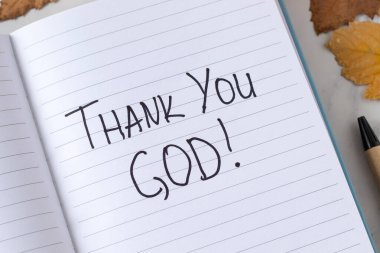 THANK YOU
GOD!